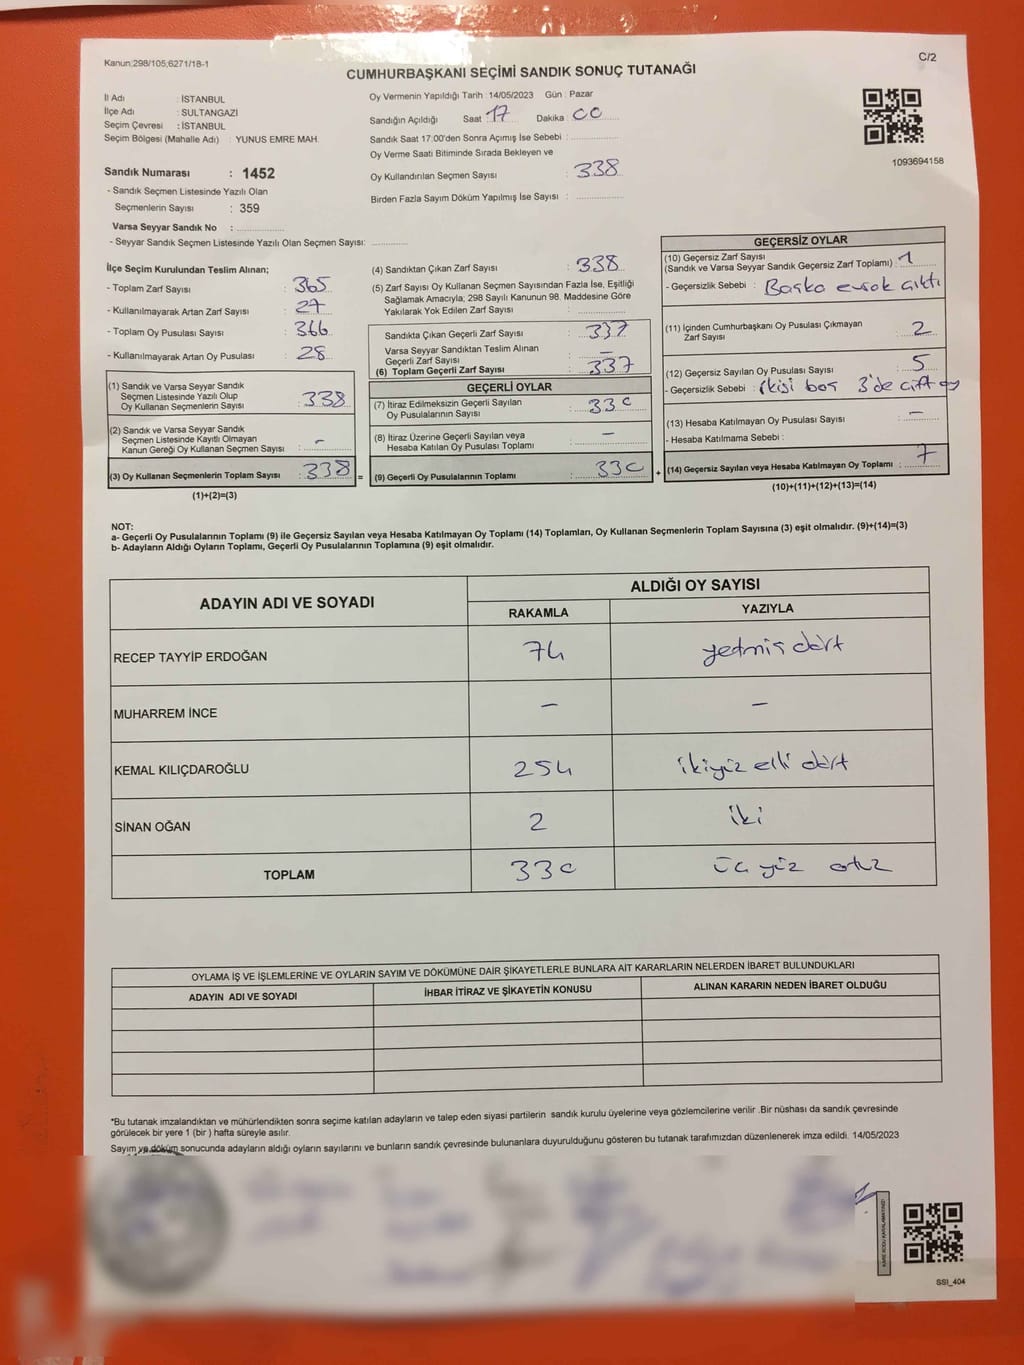 Kanun;298/105;6271/18-1
C/2
CUMHURBAŞKANI SEÇİMİ SANDIK SONUÇ TUTANAĞI
İl Adı : İSTANBUL
İlçe Adı : SULTANGAZİ
Seçim Çevresi : İSTANBUL
Seçim Bölgesi (Mahalle Adı) : YUNUS EMRE MAH.
Sandık Numarası : 1452
- Sandık Seçmen Listesinde Yazılı Olan
Seçmenlerin Sayısı : 359
Varsa Seyyar Sandık No :
- Seyyar Sandık Seçmen Listesinde Yazılı Olan Seçmen Sayısı:
Oy Vermenin Yapıldığı Tarih :14/05/2023 Gün : Pazar
Sandığın Açıldığı Saat 17 Dakika : 00
Sandık Saat 17:00'den Sonra Açımış İse Sebebi :
Oy Verme Saati Bitiminde Sırada Bekleyen ve
Oy Kullandırılan Seçmen Sayısı : 338
Birden Fazla Sayım Döküm Yapılmış İse Sayısı :
1093694158
İlçe Seçim Kurulundan Teslim Alınan;
- Toplam Zarf Sayısı : 365
- Kullanılmayarak Artan Zarf Sayısı : 27
- Toplam Oy Pusulası Sayısı : 366
- Kullanılmayarak Artan Oy Pusulası : 28
(1) Sandık ve Varsa Seyyar Sandık
Seçmen Listesinde Yazılı Olup
Oy Kullanan Seçmenlerin Sayısı : 338
(2) Sandık ve Varsa Seyyar Sandık
Seçmen Listesinde Kayıtlı Olmayan
Kanun Gereği Oy Kullanan Seçmen Sayısı : -
(3) Oy Kullanan Seçmenlerin Toplam Sayısı : 338 =
(1)+(2)=(3)
(4) Sandıktan Çıkan Zarf Sayısı : 338
(5) Zarf Sayısı Oy Kullanan Seçmen Sayısından Fazla İse, Eşitliği
Sağlamak Amacıyla; 298 Sayılı Kanunun 98. Maddesine Göre
Yakılarak Yok Edilen Zarf Sayısı :
Sandıkta Çıkan Geçerli Zarf Sayısı : 337
Varsa Seyyar Sandıktan Teslim Alınan
Geçerli Zarf Sayısı : -
(6) Toplam Geçerli Zarf Sayısı : 337
GEÇERLİ OYLAR
(7) İtiraz Edilmeksizin Geçerli Sayılan
Oy Pusulalarının Sayısı : 330
(8) İtiraz Üzerine Geçerli Sayılan veya
Hesaba Katılan Oy Pusulası Toplamı : -
(9) Geçerli Oy Pusulalarının Toplamı : 330 +
GEÇERSİZ OYLAR
(10) Geçersiz Zarf Sayısı
(Sandık ve Varsa Seyyar Sandık Geçersiz Zarf Toplamı) : 1
- Geçersizlik Sebebi : Başka evrak çıktı
(11) İçinden Cumhurbaşkanı Oy Pusulası Çıkmayan
Zarf Sayısı : 2
(12) Geçersiz Sayılan Oy Pusulası Sayısı : 5
- Geçersizlik Sebebi : ikisi boş 3'de çift oy
(13) Hesaba Katılmayan Oy Pusulası Sayısı : -
- Hesaba Katılmama Sebebi :
(14) Geçersiz Sayılan veya Hesaba Katılmayan Oy Toplamı : 7
(10)+(11)+(12)+(13)=(14)
NOT:
a- Geçerli Oy Pusulalarının Toplamı (9) ile Geçersiz Sayılan veya Hesaba Katılmayan Oy Toplamı (14) Toplamları, Oy Kullanan Seçmenlerin Toplam Sayısına (3) eşit olmalıdır. (9)+(14)=(3)
b- Adayların Aldığı Oyların Toplamı, Geçerli Oy Pusulalarının Toplamına (9) eşit olmalıdır.
ADAYIN ADI VE SOYADI
ALDIĞI OY SAYISI
RAKAMLA YAZIYLA
RECEP TAYYİP ERDOĞAN 74 yetmiş dört
MUHARREM İNCE - -
KEMAL KILIÇDAROĞLU 254 ikiyüz elli dört
SİNAN OĞAN 2 iki
TOPLAM 330 üç yüz otuz
OYLAMA İŞ VE İŞLEMLERİNE VE OYLARIN SAYIM VE DÖKÜMÜNE DAİR ŞİKAYETLERLE BUNLARA AİT KARARLARIN NELERDEN İBARET BULUNDUKLARI
ADAYIN ADI VE SOYADI İHBAR İTİRAZ VE ŞİKAYETİN KONUSU ALINAN KARARIN NEDEN İBARET OLDUĞU
*Bu tutanak imzalandıktan ve mühürlendikten sonra seçime katılan adayların ve talep eden siyasi partilerin sandık kurulu üyelerine veya gözlemcilerine verilir .Bir nüshası da sandık çevresinde
görülecek bir yere 1 (bir ) hafta süreyle asılır.
Sayım ve döküm sonucunda adayların aldığı oyların sayılarını ve bunların sandık çevresinde bulunanlara duyurulduğunu gösteren bu tutanak tarafımızdan düzenlenerek imza edildi. 14/05/2023
SSI_404